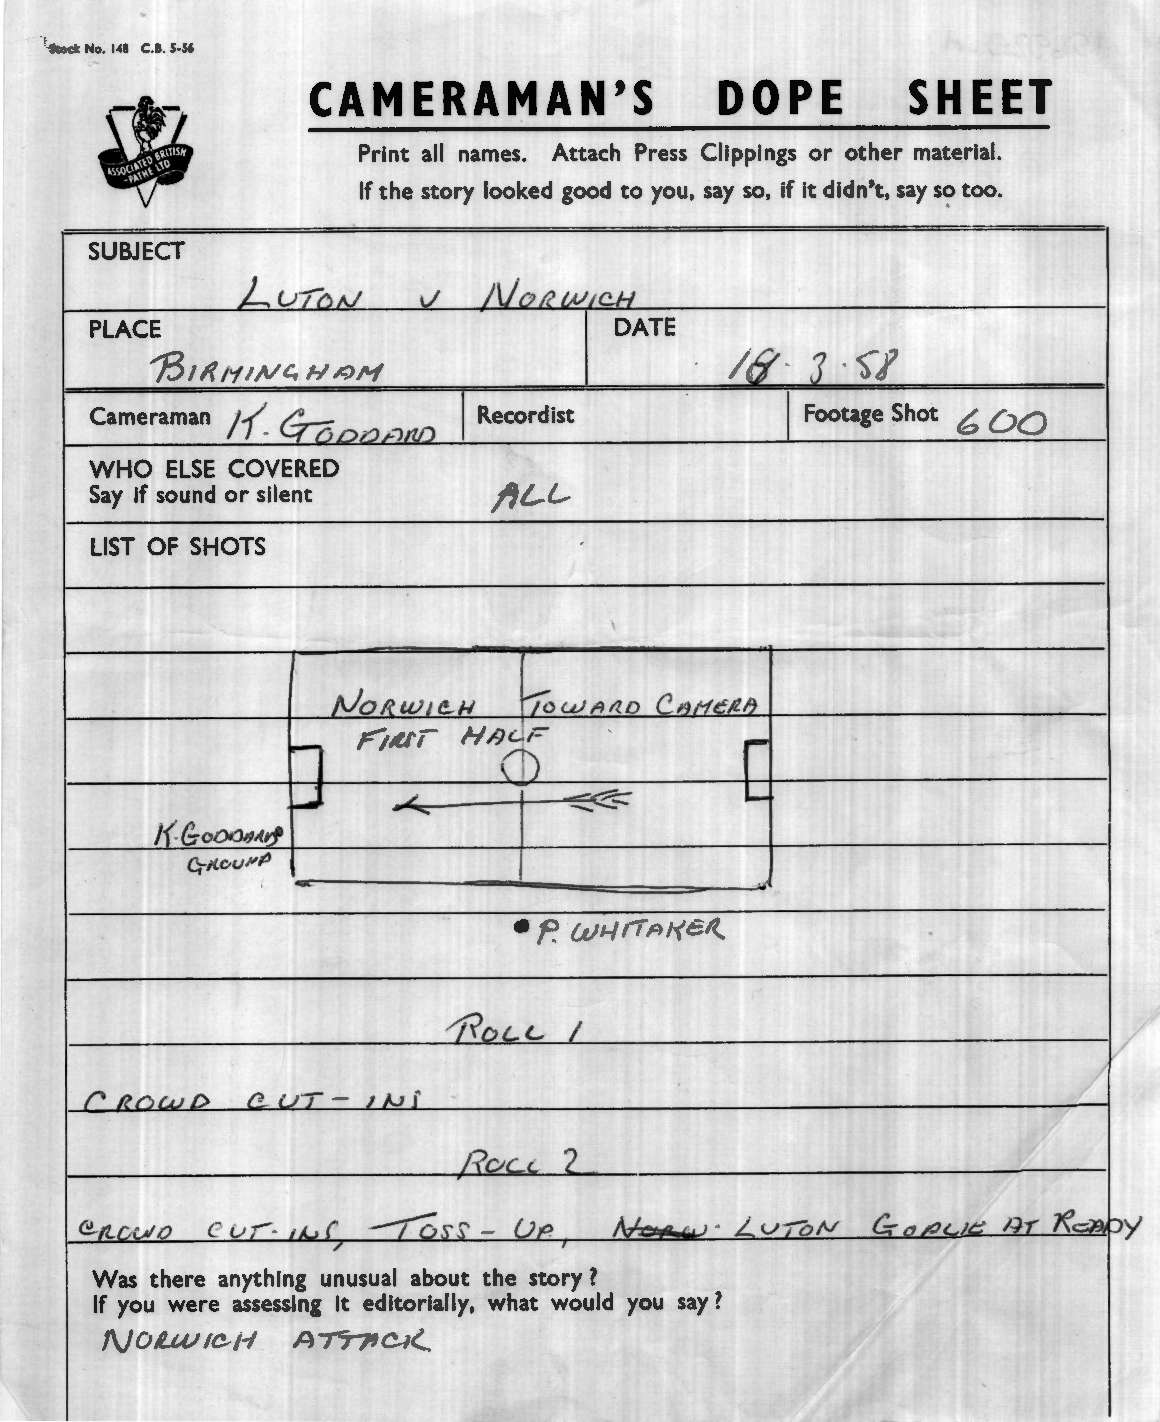 Stock No. 148 C.B. 5-56
CAMERAMAN'S DOPE SHEET
ASSOCIATED BRITISH
-PATHE LTD
Print all names. Attach Press Clippings or other material.
If the story looked good to you, say so, if it didn't, say so too.
SUBJECT
LUTON v NORWICH
PLACE
BIRMINGHAM
DATE
18.3.58
Cameraman K. GODDARD
Recordist
Footage Shot 600
WHO ELSE COVERED
Say if sound or silent
ALL
LIST OF SHOTS
NORWICH TOWARD CAMERA
FIRST HALF
K. GODDARD
GROUND
P. WHITAKER
ROLL 1
CROWD CUT-INS
ROLL 2
CROWD CUT-INS, TOSS-UP, NORW. LUTON GOALIE AT READY
Was there anything unusual about the story?
If you were assessing it editorially, what would you say?
NORWICH ATTACK